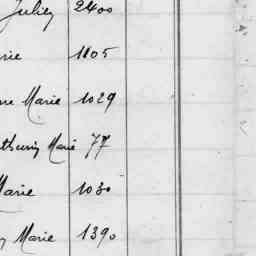 Julien 2400
rie 1105
ne Marie 1029
thurin Marie 77
Marie 1030
Marie 1390